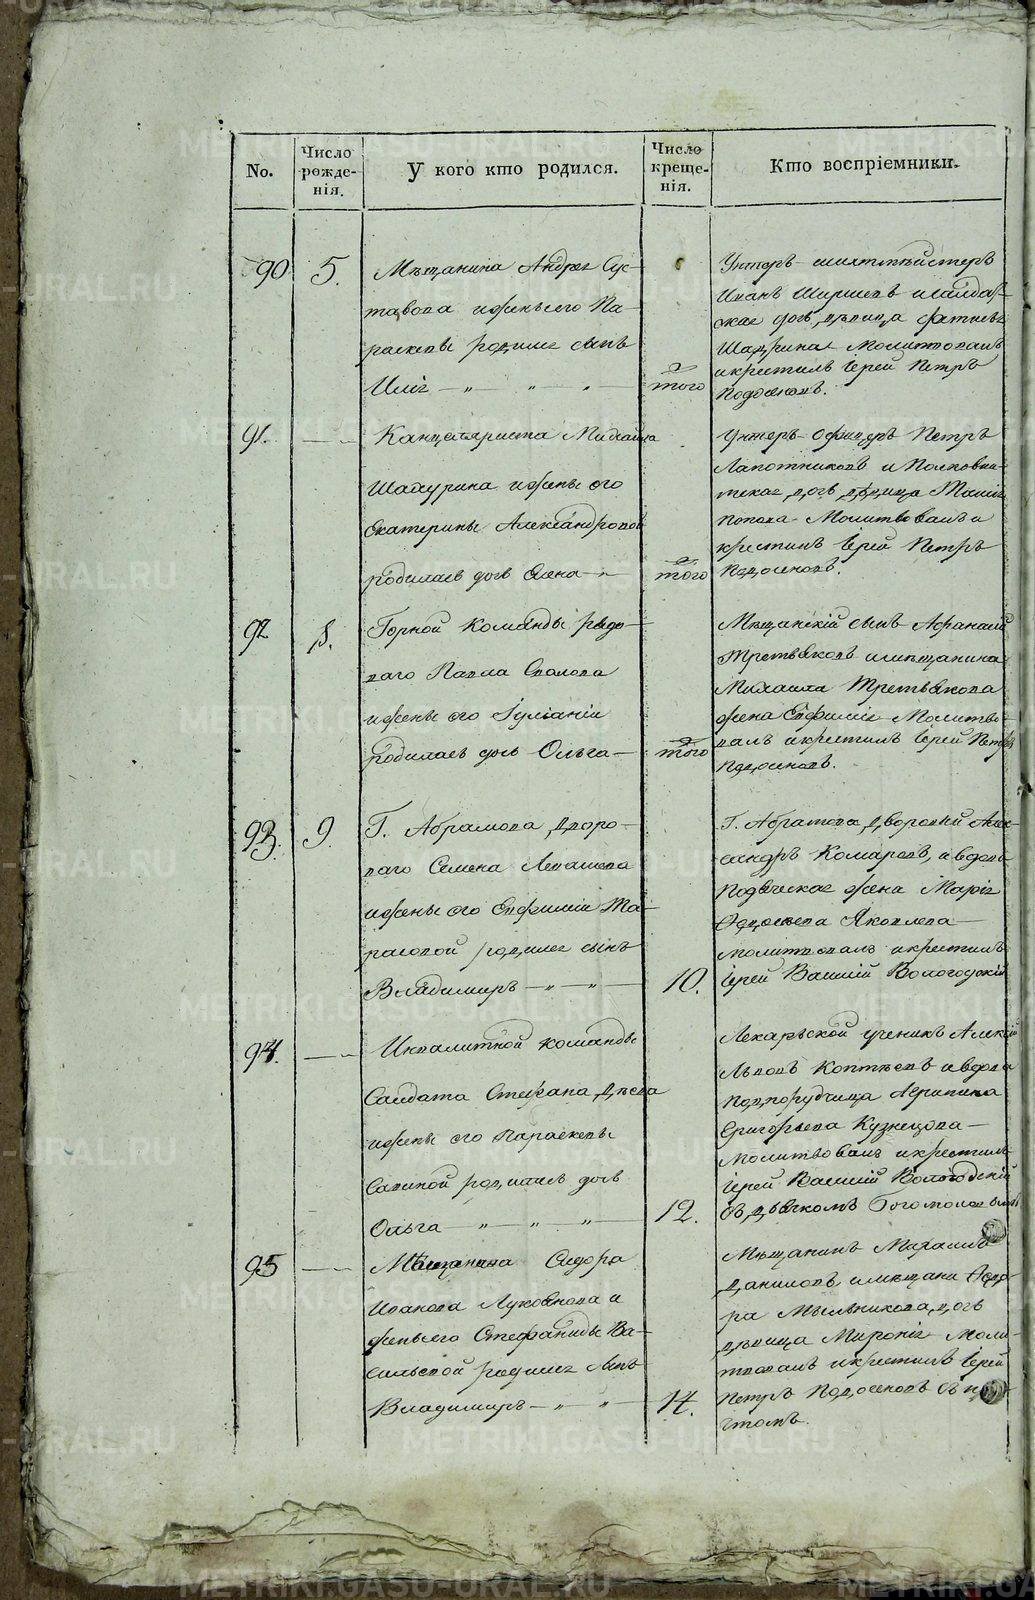 No.
Число рожде-нія.
У кого кто родился.
Число креще-нія.
Кто воспріемники.
90
5.
Мѣщанина Андрея Сус-
тавова и жены его Па-
раскевы родился сынъ
Илія — " — " — " —
того
Унтеръ-шихтмейстеръ
Иванъ Ширяевъ и солдат-
ская дочь дѣвица
Шадрина Молитвовалъ
и крестилъ Іерей Петръ
Подосеновъ.
91.
Канцеляриста Михаила
и жены его
Екатерины Александровой
родилась дочь Елена — " —
того
Унтеръ-офицеръ Петръ
Лапотниковъ и
дочь дѣвица
Попова Молитвовалъ и
крестилъ Іерей Петръ
Подосеновъ.
92
8.
Горной Команды рядо-
ваго Павла
и жены его Іуліаніи
родилась дочь Ольга —
того
Мѣщанскій сынъ Афанасій
Третьяковъ и мѣщанина
Михаила Третьякова
жена Евфимія Молитво-
валъ и крестилъ Іерей Петръ
Подосеновъ.
93.
9.
Г. Абрамова дворо-
ваго Семена
и жены его Евфиміи Та-
расовой родился сынъ
Владимиръ — " — " —
10.
Г. Абрамова дворовый Алек-
сандръ Комаровъ, и вдова
Подъяческая жена Марія
Федосеева Яковлева —
молитвовалъ и крестилъ
Іерей Василій Вологодскій
94.
Инвалитной команды
Солдата Стефана
и жены его Параскевы
Савиной родилась дочь
Ольга — " — " — " —
12.
Лекарской ученикъ Алексѣй
Львовъ Коптяевъ и вдова
Подпорутчица Агрипина
Григорьева Кузнецова —
Молитвовалъ и крестилъ
Іерей Василій Вологодскій
съ дьячкомъ Богомоловымъ
95
Мѣщанина Сидора
Иванова Луковнова и
жены его Стефаниды Ва-
сильевой родился сынъ
Владимиръ — " — " —
14.
Мѣщанинъ Михаилъ
Даниловъ и мѣщани Федо-
ра Мыльникова дочь
дѣвица Миронія Моли-
твовалъ и крестилъ Іерей
Петръ Подосеновъ съ при-
чтомъ.
METRIKI.GASU-URAL.RU